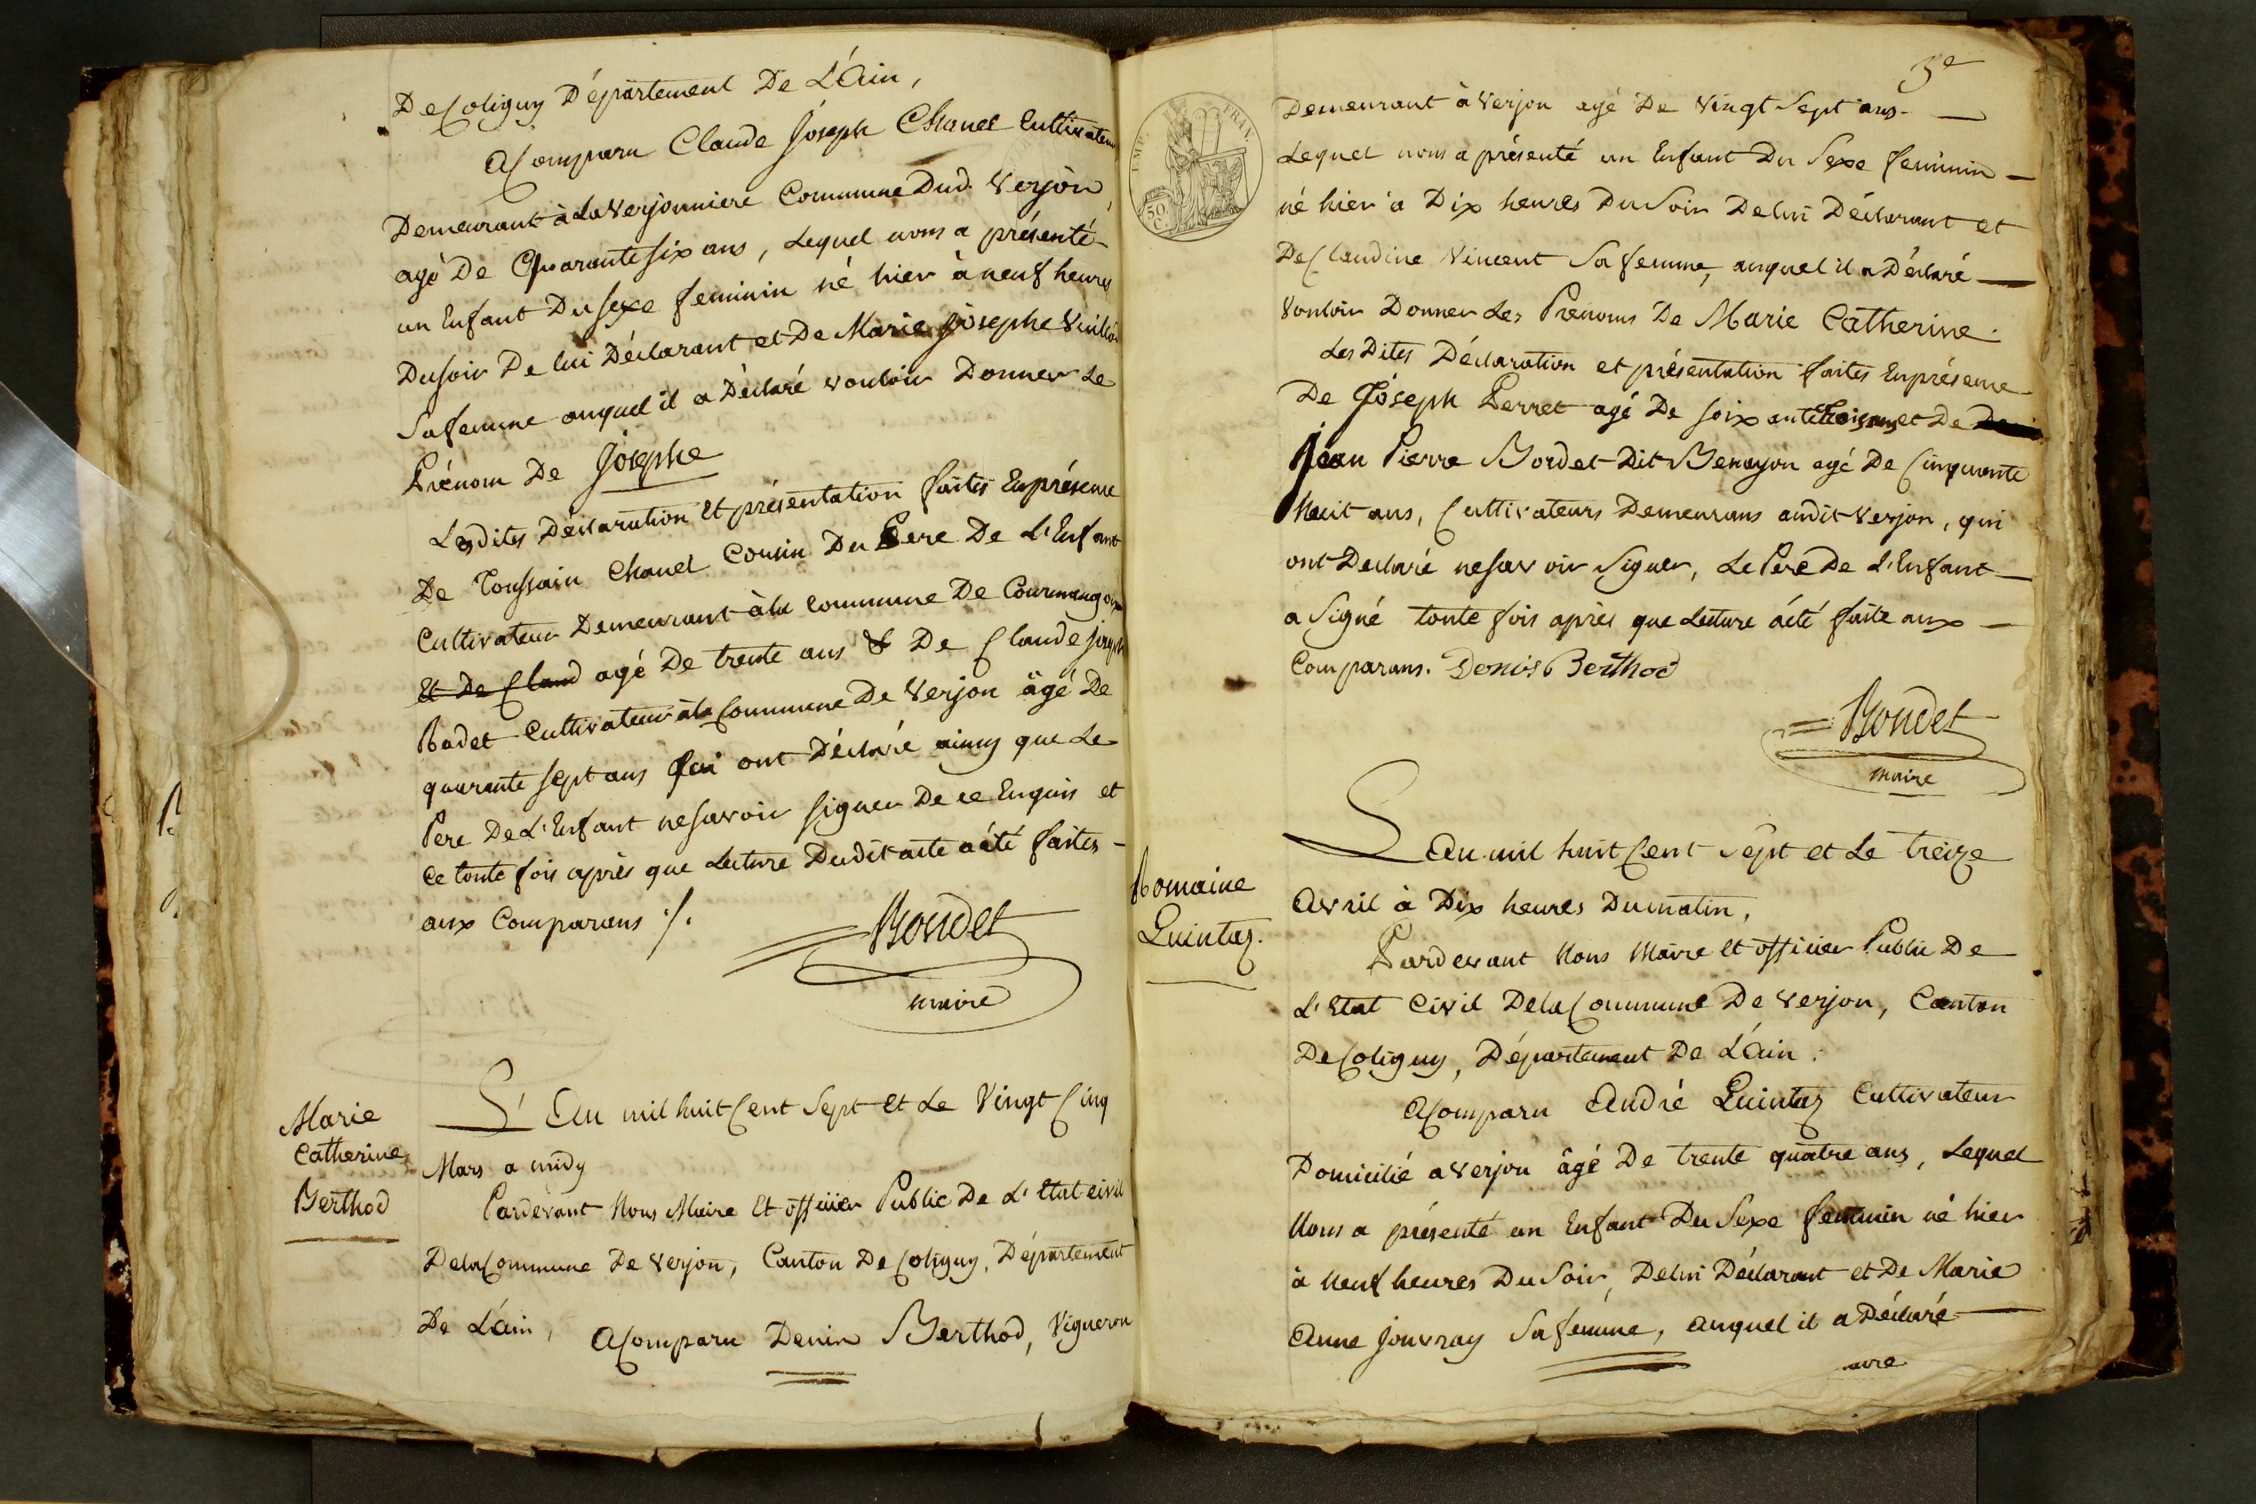 De Coligny Département De L'Ain,
A Comparu Claude Joseph Chanel Cultivateur
Demeurant à la Verjonniere Commune Dud. Verjon,
agé De Quarante six ans, Lequel nous a présenté
un Enfant Du sexe feminin né hier à neuf heures
Du soir De lui Déclarant et De Marie Josephe
Sa femme auquel il a Déclaré vouloir Donner Le
Prénom De Josephe
Lesdites Déclaration Et présentation faites En présence
De Toussain Chanel Cousin Du Pere De L'Enfant
Cultivateur Demeurant à la Commune De Courmangoux
Et De Claud agé De trente ans & De Claude Joseph
Badet Cultivateur à la Commune De Verjon âgé De
quarante sept ans qui ont Déclaré ainsy que Le
Pere De L'Enfant ne savoir signer De ce Enquis et
Ce toute fois après que Lecture Dudit acte a été faites -
aux Comparans ./.
Bondet
maire
Marie
Catherine
Berthod
L'An mil huit Cent Sept Et Le Vingt Cinq
Mars a midy
Pardevant Nous Maire Et officier Public De L'Etat civil
De la Commune De Verjon, Canton De Coligny, Département
De L'ain,
A Comparu Denis Berthod, Vigneron
3e
Demeurant à Verjon agé De Vingt Sept ans -
Lequel nous a présenté un Enfant Du Sexe feminin -
né hier à Dix heures Du Soir De lui Déclarant et
De Claudine Vincent Sa femme, auquel il a Déclaré
Vouloir Donner Les Prenoms De Marie Catherine.
Les Dites Déclaration et présentation faites En présence
De Joseph Perret agé De soixante trois ans et De
Jean Pierre Bordet Dit Benoyon agé De Cinquante
huit ans, Cultivateurs Demeurans audit Verjon, qui
ont Declaré ne savoir Signer, Le Pere De L'Enfant -
a Signé toute fois après que Lecture a été faite aux -
Comparans. Denis Berthod
Bondet
maire
IMP. FRAN.
50
C.
Romaine
Quintaz.
L An mil huit Cent Sept et Le treize
Avril à Dix heures Du matin,
Pardevant Nous Maire Et officier Public De
L'Etat Civil De la Commune De Verjon, Canton
De Coligny, Département De L'Ain.
A Comparu André Quintaz Cultivateur
Domicilié a Verjon âgé De trente quatre ans, Lequel
Nous a présenté un Enfant Du Sexe feminin né hier
à Neuf heures Du Soir, De lui Déclarant et De Marie
Anne Jouvray Sa femme, auquel il a Déclaré